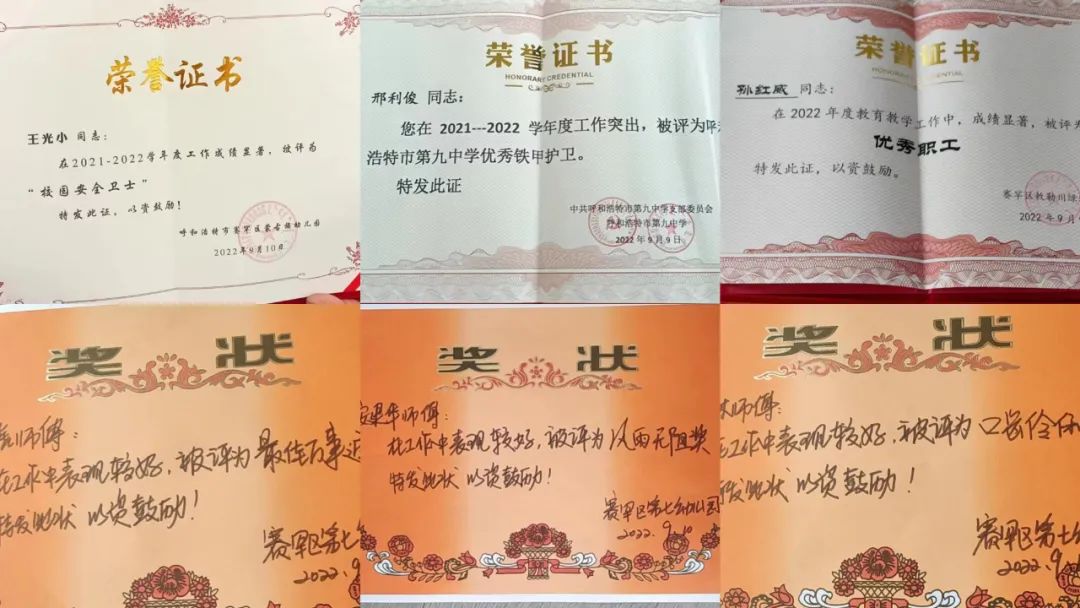 荣誉证书
王光小 同志：
在2021-2022学年度工作成绩显著，被评为
“校园安全卫士”
特发此证，以资鼓励！
呼和浩特市赛罕区蒙古族幼儿园
2022年9月10日
荣誉证书
HONORARY CREDENTIAL
邢利俊 同志：
您在 2021---2022 学年度工作突出，被评为呼
浩特市第九中学优秀铁甲护卫。
特发此证
中共呼和浩特市第九中学支部委员会
呼和浩特市第九中学
2022年9月9日
荣誉证书
HONORARY CREDENTIAL
孙红威 同志：
在 2022 年度教育教学工作中，成绩显著，被评为
优秀职工
特发此证，以资鼓励。
赛罕区敕勒川绿
2022年9月
奖 状
师傅：
在工作中表现较好，被评为最佳万事
特发此状 以资鼓励！
赛罕区第七
2022.9
奖 状
师傅：
在工作中表现较好，被评为风雨无阻奖
特发此状 以资鼓励！
赛罕区第七幼儿园
2022.9.10
奖 状
师傅：
在工作中表现较好，被评为口齿伶
特发此状 以资鼓励！
赛罕区第七幼
2022.9